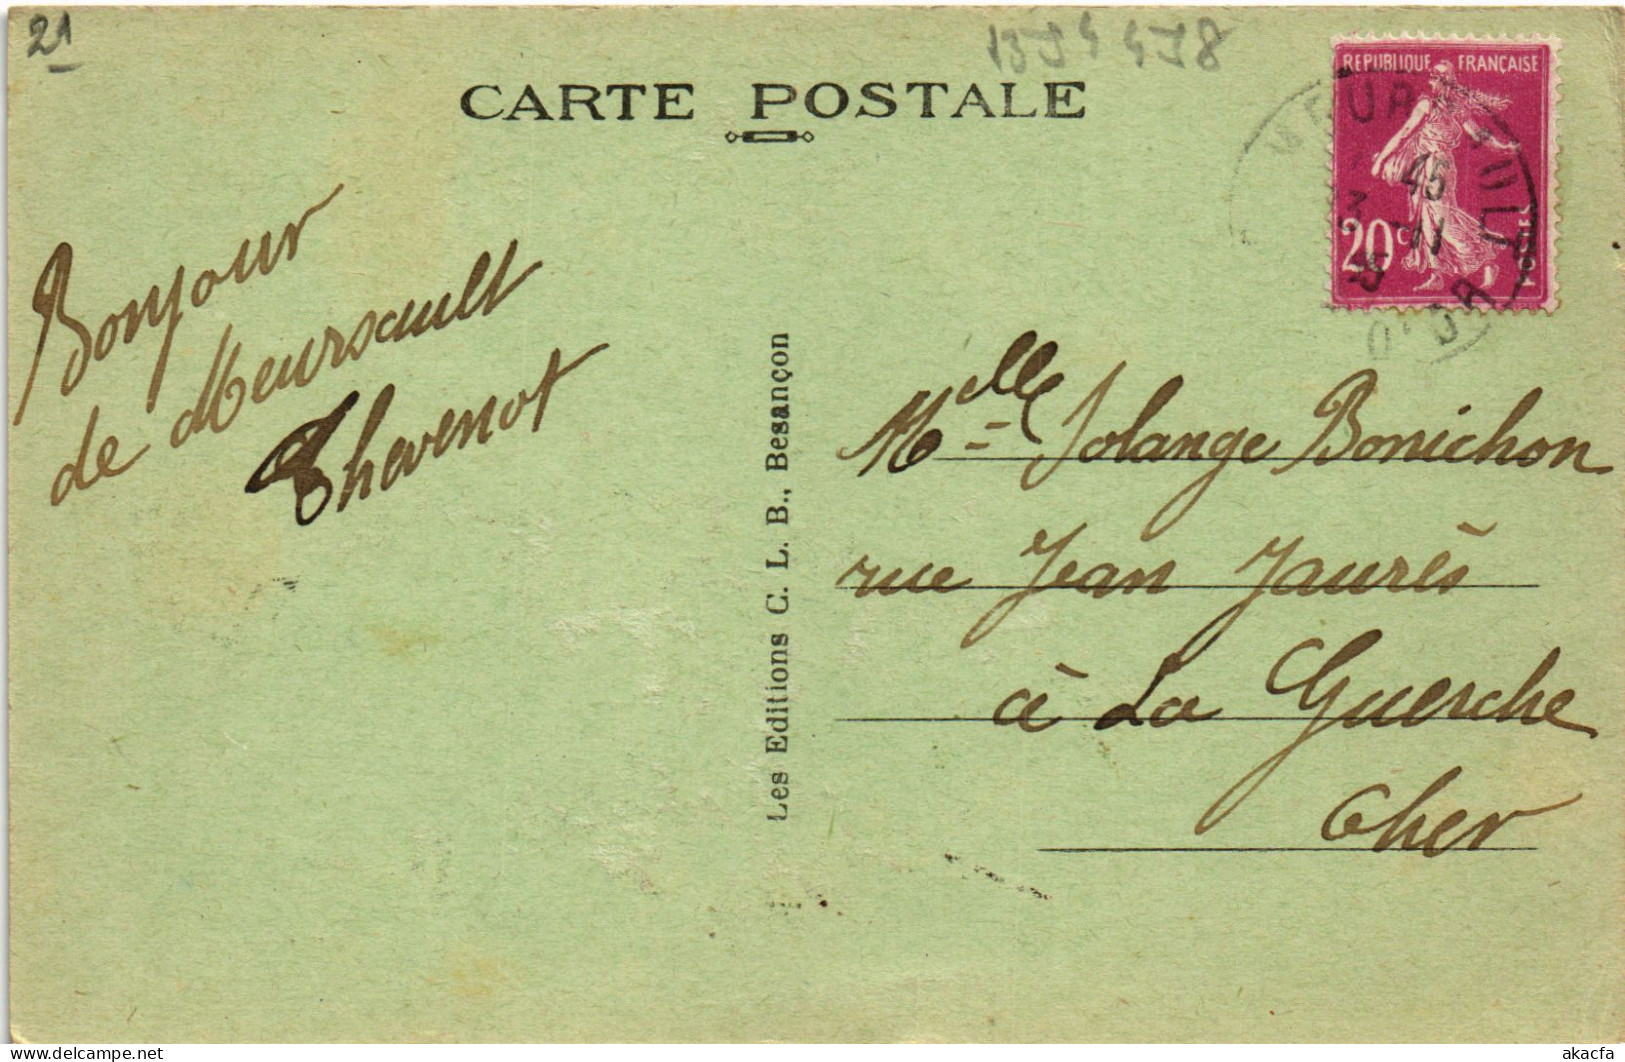 21
1354458
CARTE POSTALE
REPUBLIQUE FRANÇAISE
20c
POSTES
MEURSAULT
45
3 -11
35
D'OR
Bonjour
de Meursault
Thevenot
Les Editions C. L. B., Besançon
Melle Solange Bonichon
rue Jean Jaurès
à La Guerche
Cher
akacfa